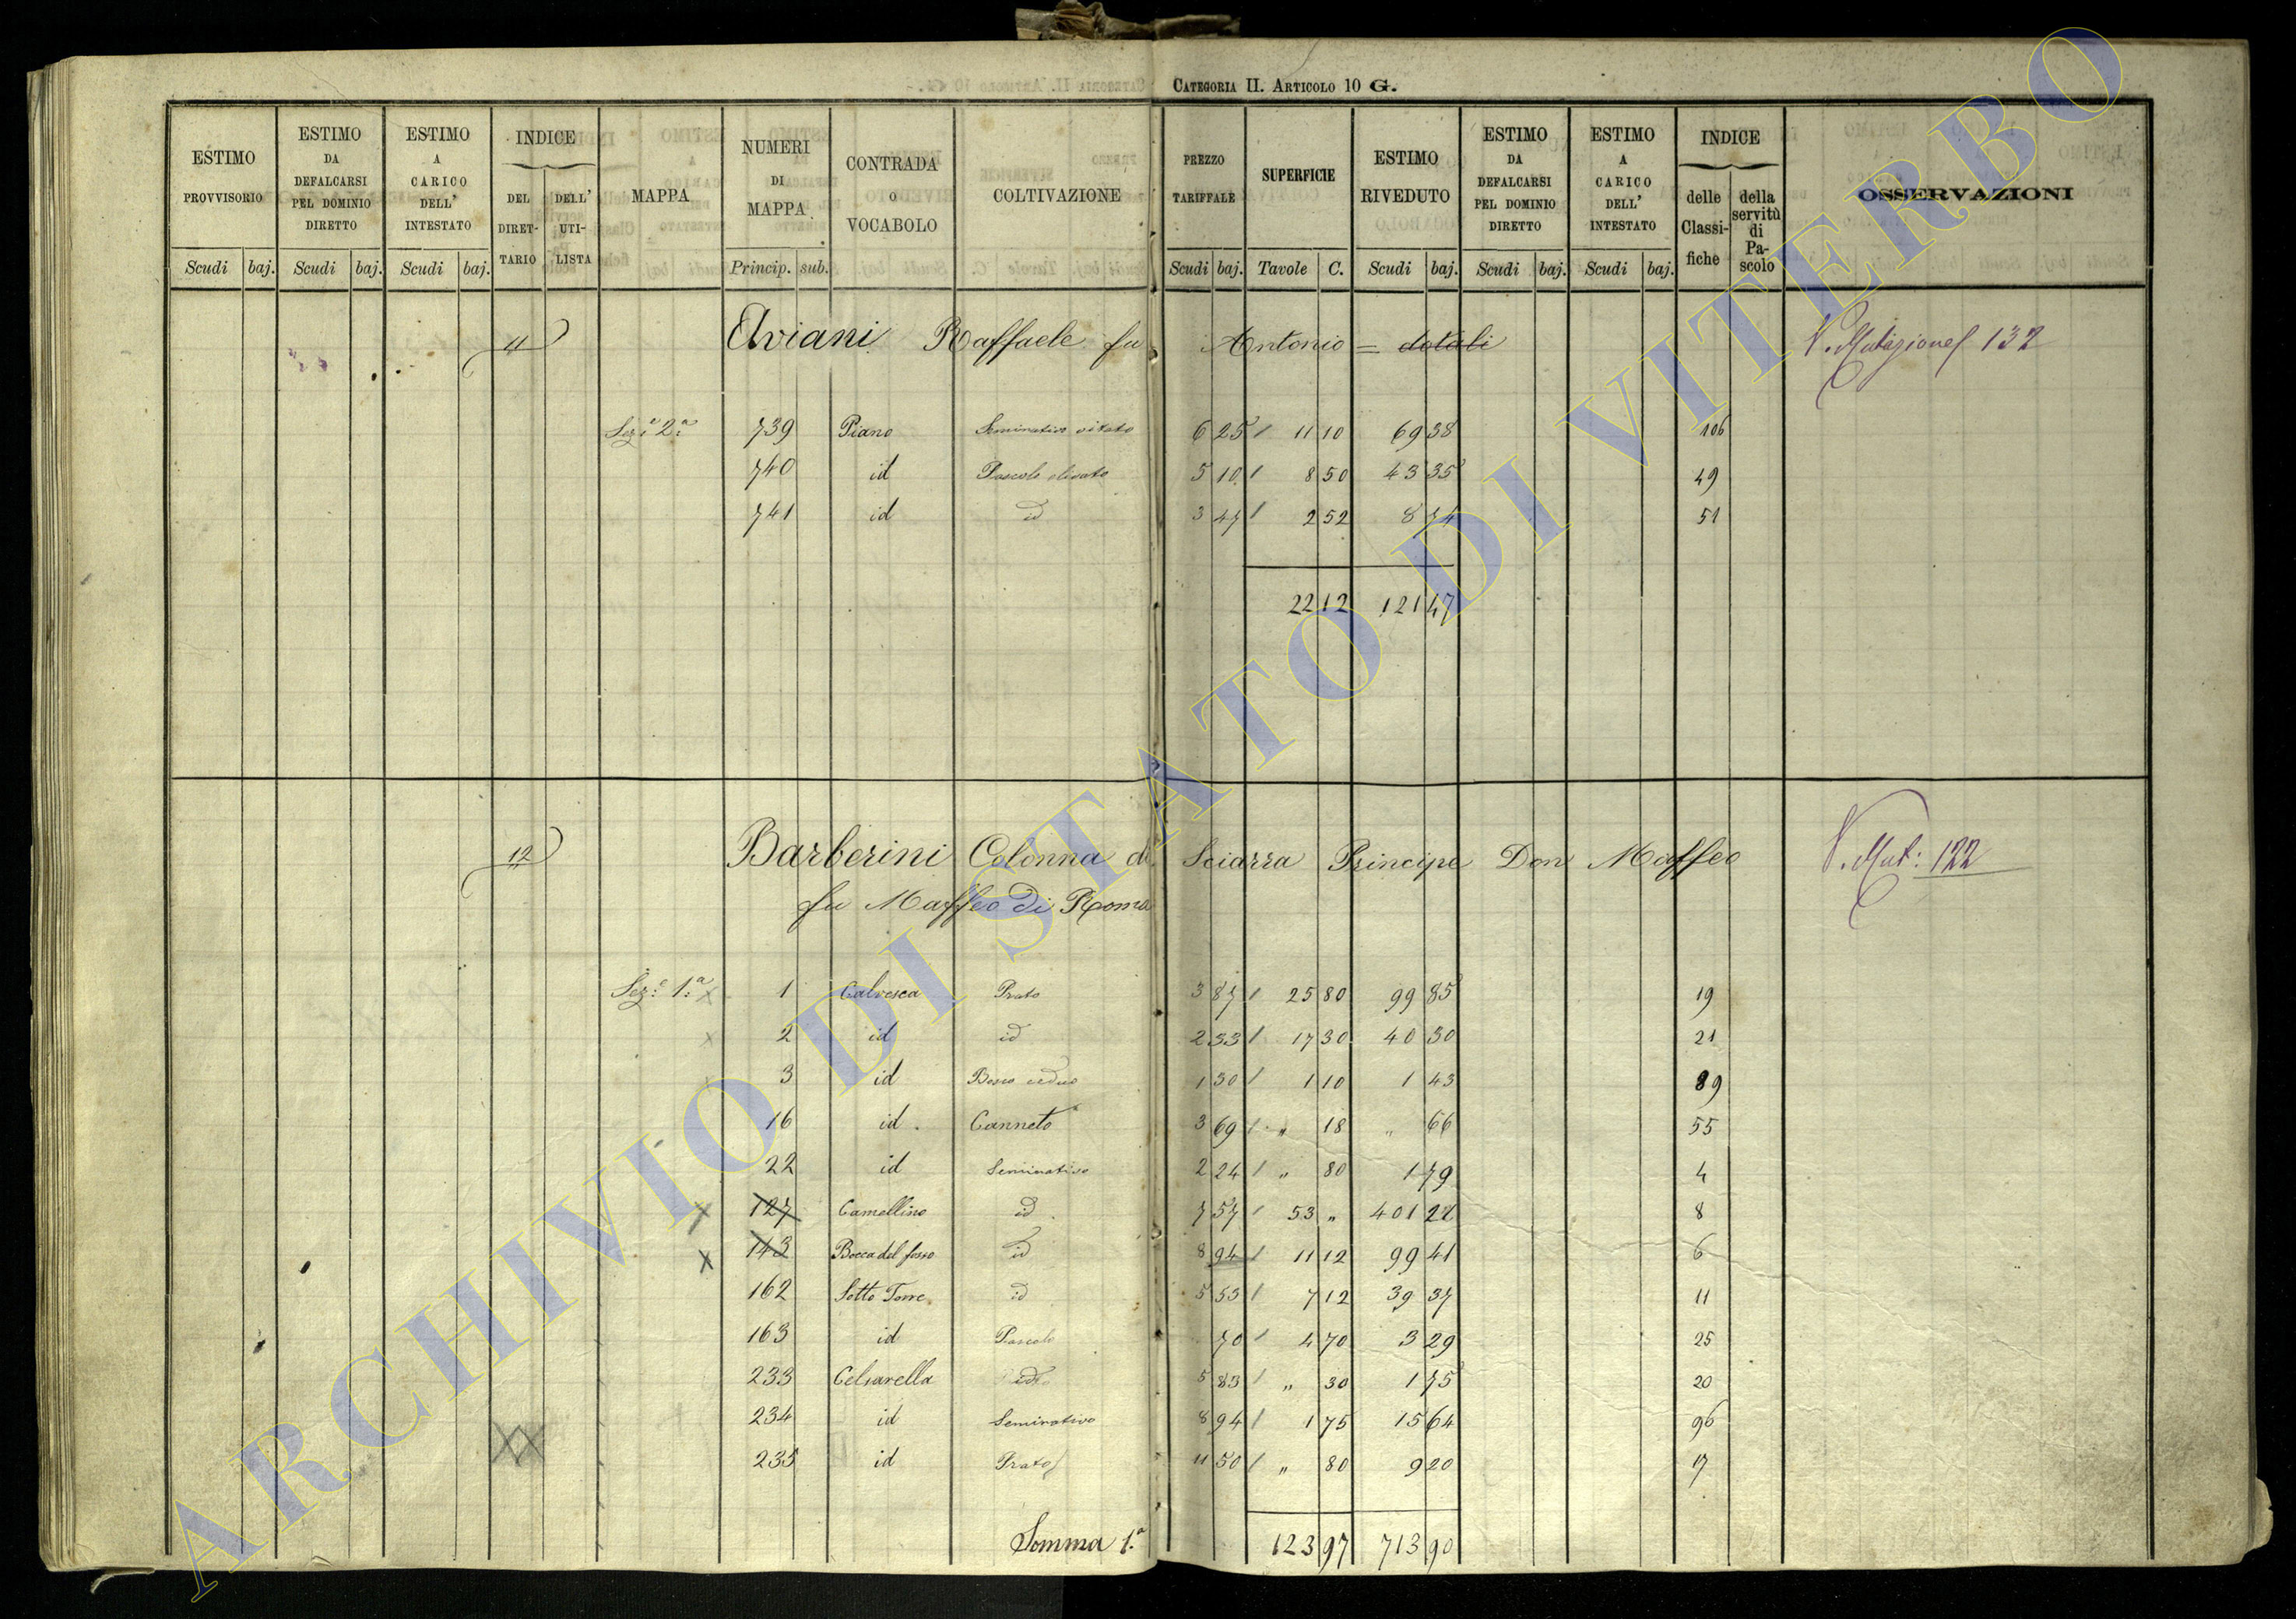 CATEGORIA II. ARTICOLO 10 G.
ESTIMO PROVVISORIO | ESTIMO DA DEFALCARSI PEL DOMINIO DIRETTO | ESTIMO A CARICO DELL' INTESTATO | INDICE | MAPPA | NUMERI DI MAPPA | CONTRADA O VOCABOLO | COLTIVAZIONE | PREZZO TARIFFALE | SUPERFICIE | ESTIMO RIVEDUTO | ESTIMO DA DEFALCARSI PEL DOMINIO DIRETTO | ESTIMO A CARICO DELL' INTESTATO | INDICE | OSSERVAZIONI
DEL DIRETTARIO | DELL' UTILISTA | delle Classifiche | della servitù di Pascolo
Scudi baj. Scudi baj. Scudi baj. Princip. sub. Scudi baj. Tavole C. Scudi baj. Scudi baj. Scudi baj.
11 Aviani Raffaele fu Antonio = dotali V. Mutazione 132
Sez.e 2.a 739 Piano Seminativo vitato 6 25 11 10 69 38 106
740 id Pascolo olivato 5 10 8 50 43 35 49
741 id id 3 47 2 52 8 74 51
22 12 121 47
12 Barberini Colonna di Sciarra Principe Don Maffeo V. Mut: 122
fu Maffeo di Roma
Sez.e 1.a 1 Calvesca Prato 3 87 25 80 99 85 19
2 id id 2 33 17 30 40 30 21
3 id Bosco ceduo 1 30 1 10 1 43 89
16 id Canneto 3 69 " 18 " 66 55
22 id Seminativo 2 24 " 80 1 79 4
x 127 Camellino id 7 57 53 " 401 21 8
x 143 Bocca del fosso id 8 94 11 12 99 41 6
162 Sotto Torre id 5 53 7 12 39 37 11
163 id Pascolo 70 4 70 3 29 25
233 Celsarella id 5 83 " 30 1 75 20
234 id Seminativo 8 94 1 75 15 64 96
XX 235 id Prato 11 50 " 80 9 20 17
Somma 1.a 123 97 713 90
ARCHIVIO DI STATO DI VITERBO